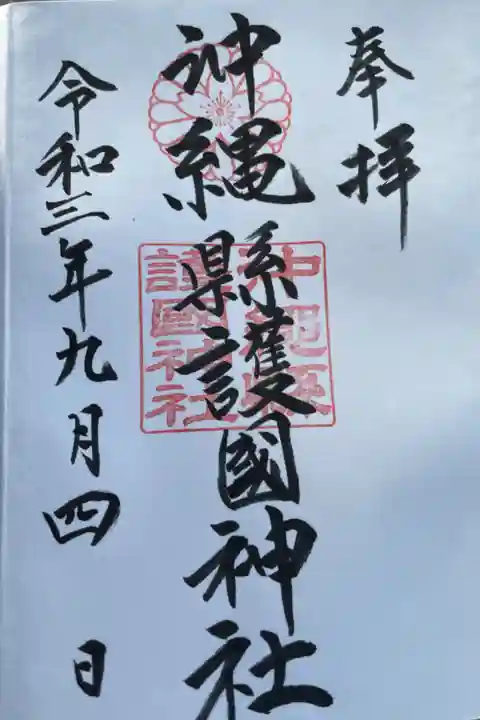 奉拝
沖縄縣護國神社
沖縄縣護國神社
令和三年九月四日